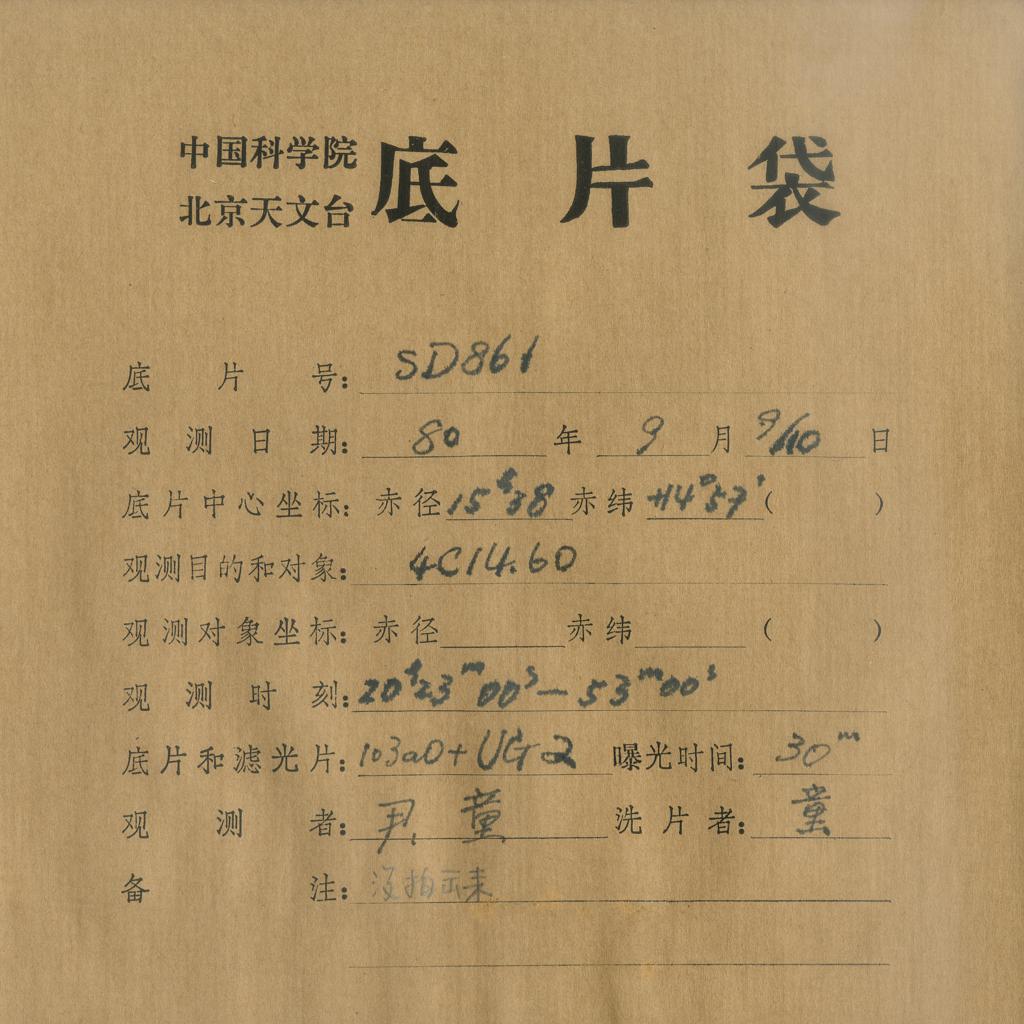 中国科学院
北京天文台
底片袋
底片号: SD861
观测日期: 80年9月9/10日
底片中心坐标: 赤径15ʰ38 赤纬+14°57′( )
观测目的和对象: 4C14.60
观测对象坐标: 赤径 赤纬 ( )
观测时刻: 20ʰ23ᵐ00ˢ—53ᵐ00ˢ
底片和滤光片: 103aO+UG2 曝光时间: 30ᵐ
观测者: 尹、童 洗片者: 童
备注: 没拍